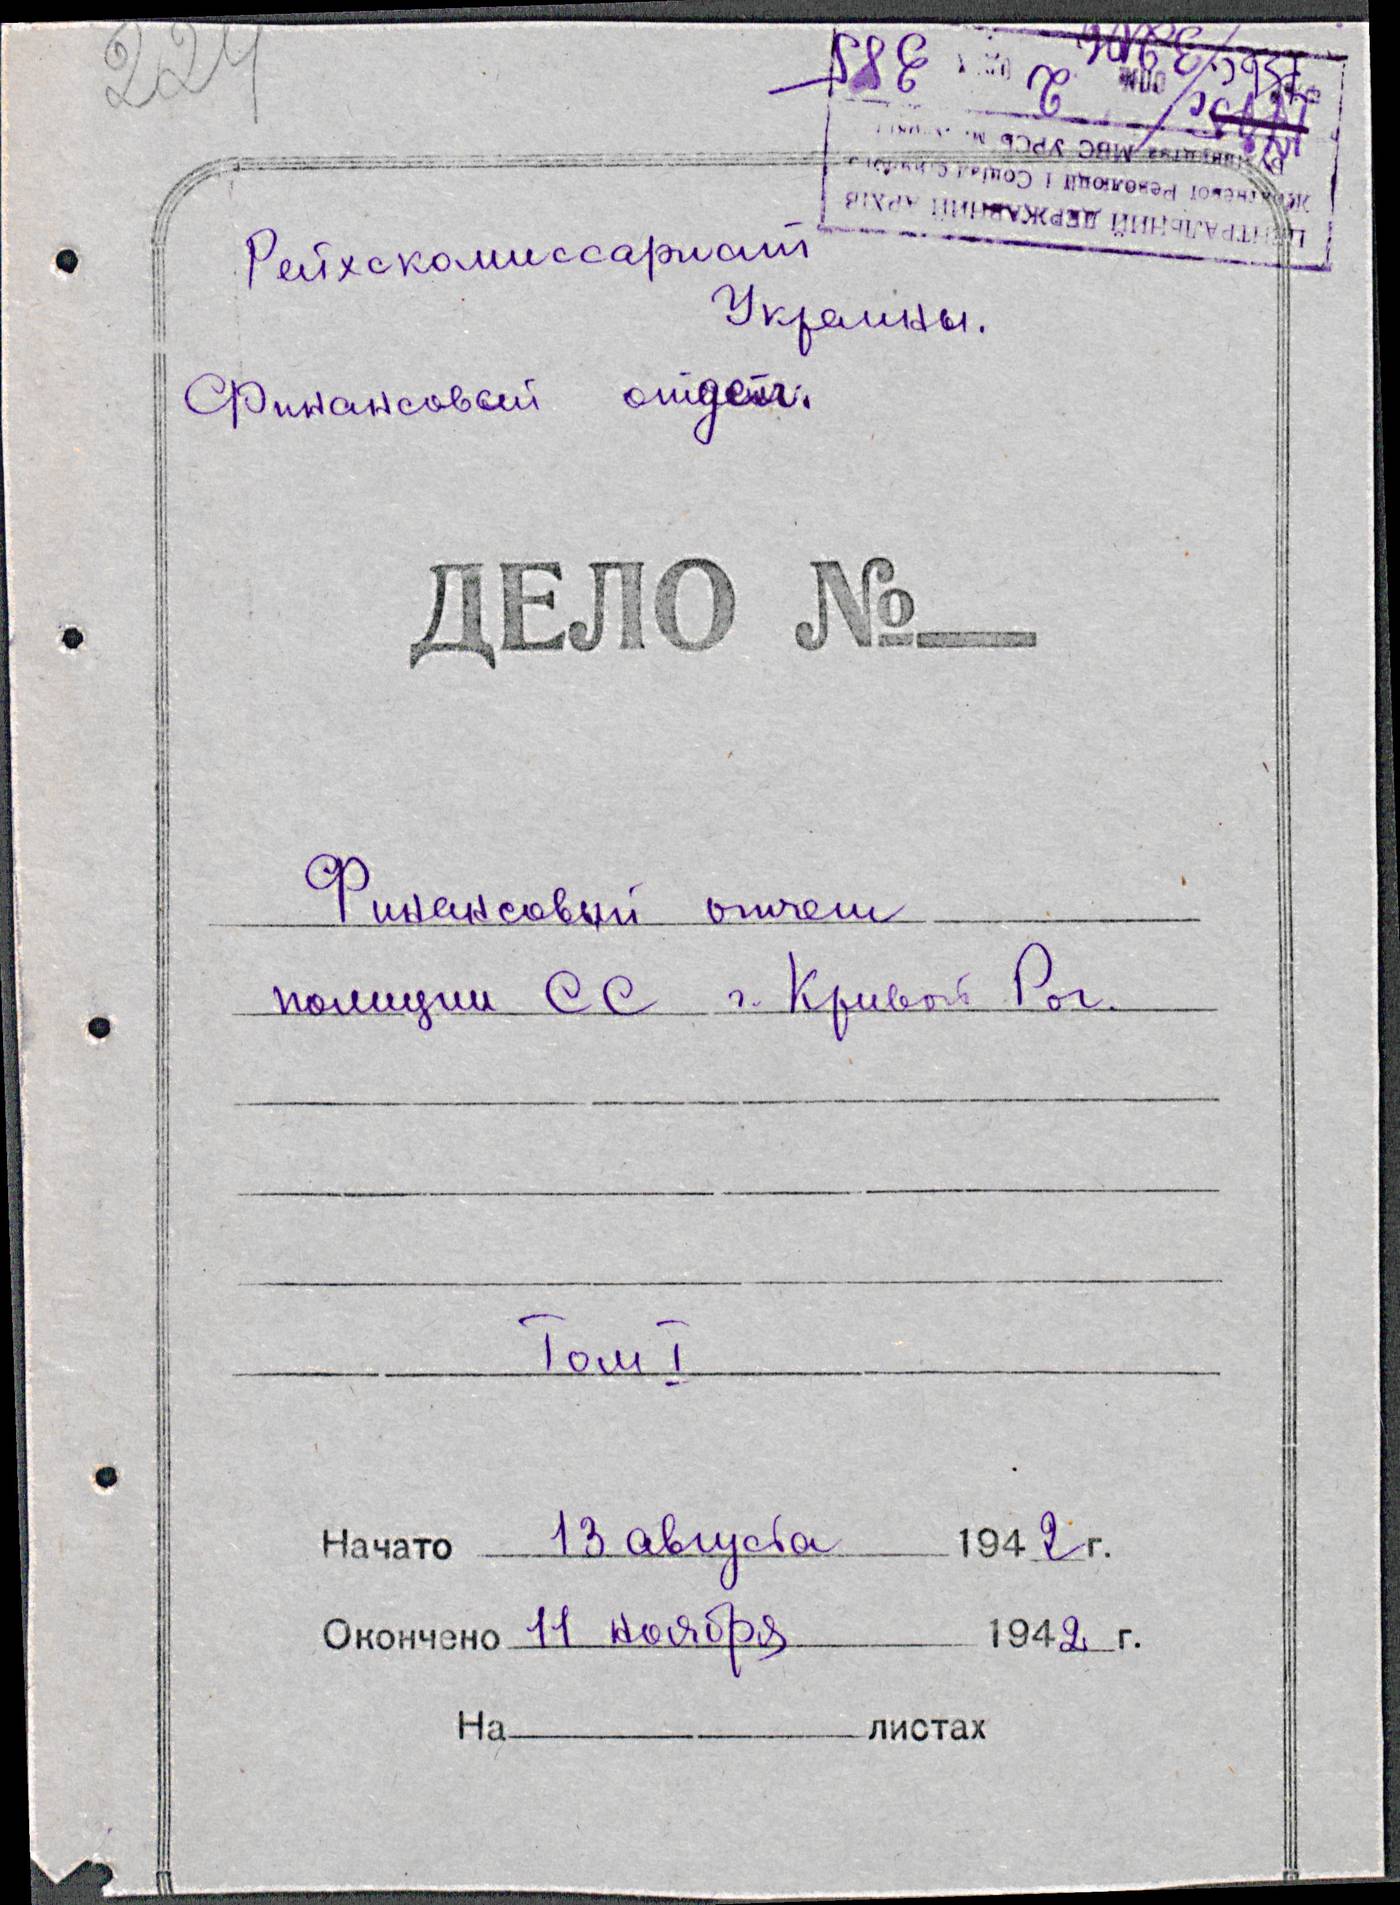 224
ЦЕНТРАЛЬНИЙ ДЕРЖАВНИЙ АРХІВ
Жовтневої Революції і Соціал
МВС УРСР м.
Рейхскомиссариат
Украины.
Финансовый отдел.
ДЕЛО №
Финансовый отчет
полиции СС г. Кривой Рог.
Том I
Начато 13 августа 1942 г.
Окончено 11 ноября 1942 г.
На листах